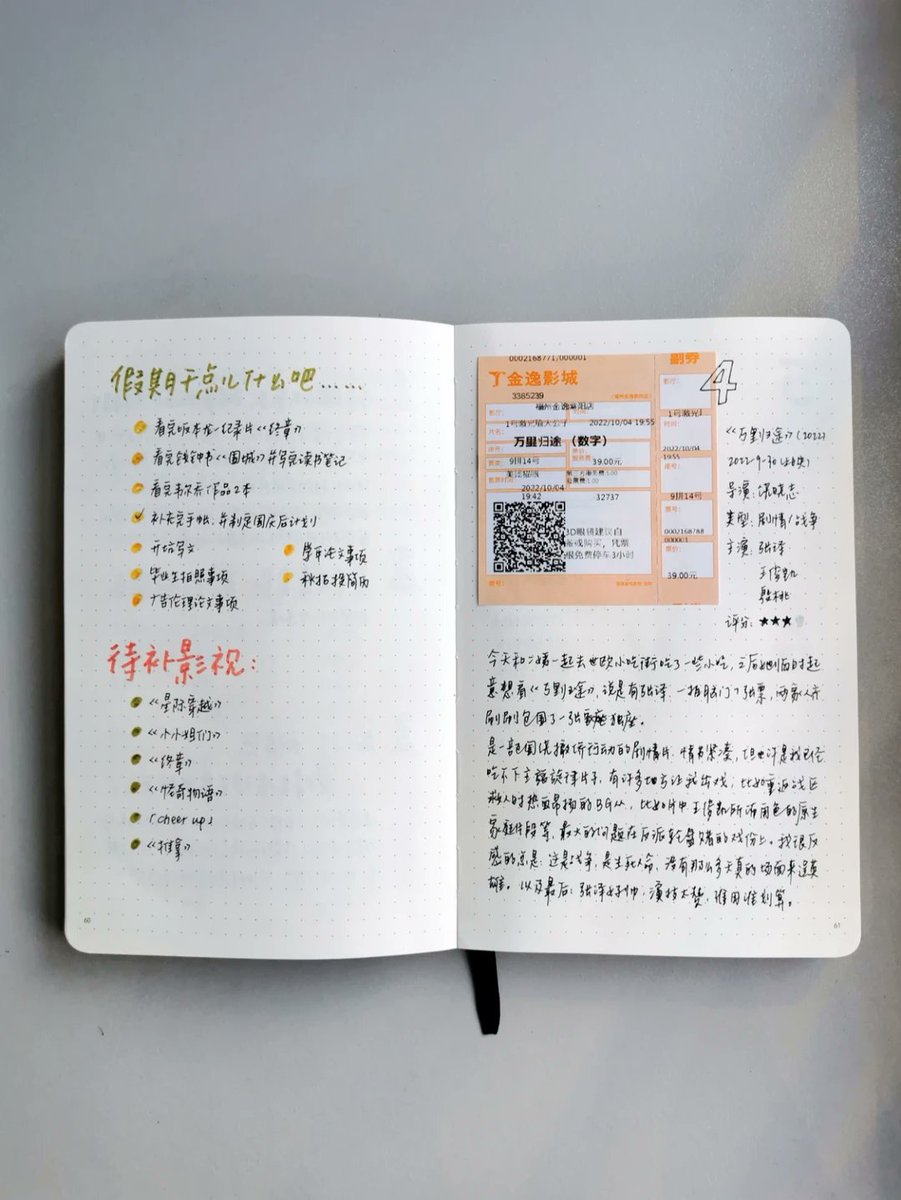 假期干点儿什么吧……
看完坂本龙一纪录片《终章》
看完钱钟书《围城》并写完读书笔记
看完韦尔乔作品2本
补充完手帐,并制定国庆后计划
开坑写文
毕业生拍照事项
广告伦理论文事项
学年论文事项
秋招投简历
待补影视:
《星际穿越》
《小小姐们》
《终章》
《怪奇物语》
「cheer up」
《推拿》
60
0002168771/000001
金逸影城
3385239
影厅:
1号激光
片名:
万里归途 (数字)
9排14号
票价:
服务费
39.00元
2022/10/04 19:55
2022/10/04
19:42
32737
3D眼镜建议自
限免费停车3小时
票号:
副券
影厅:
1号激光
时间:
2022/10/04
19:55
座号:
9排14号
票号:
000/168788
000001
票价:
39.00元
4
《万里归途》(2022)
2022-9-30(上映)
导演:饶晓志
类型:剧情/战争
主演:张译
王俊凯
殷桃
评分:★★★
今天和 一起去世欧小吃街吃了一些小吃,之后她们临时起
意想看《万里归途》,说是有张译,一拍脑门 张票,两家人齐
刷刷包围了一张 独座。
是一部围绕撤侨行动的剧情片,情节紧凑,但也许是我已经
吃不下主旋律片子,有许多地方让我出戏,比如重返战区
救人时热血昂扬的BGM,比如片中王俊凯所饰角色的原生
家庭片段等,最大的问题在反派轮盘赌的戏份上。我很反
感的点是:这是战争,是生死人命,没有那么多天真的场面来逞英
雄。以及最后:张译好帅,演技太赞,谁用谁划算。
61